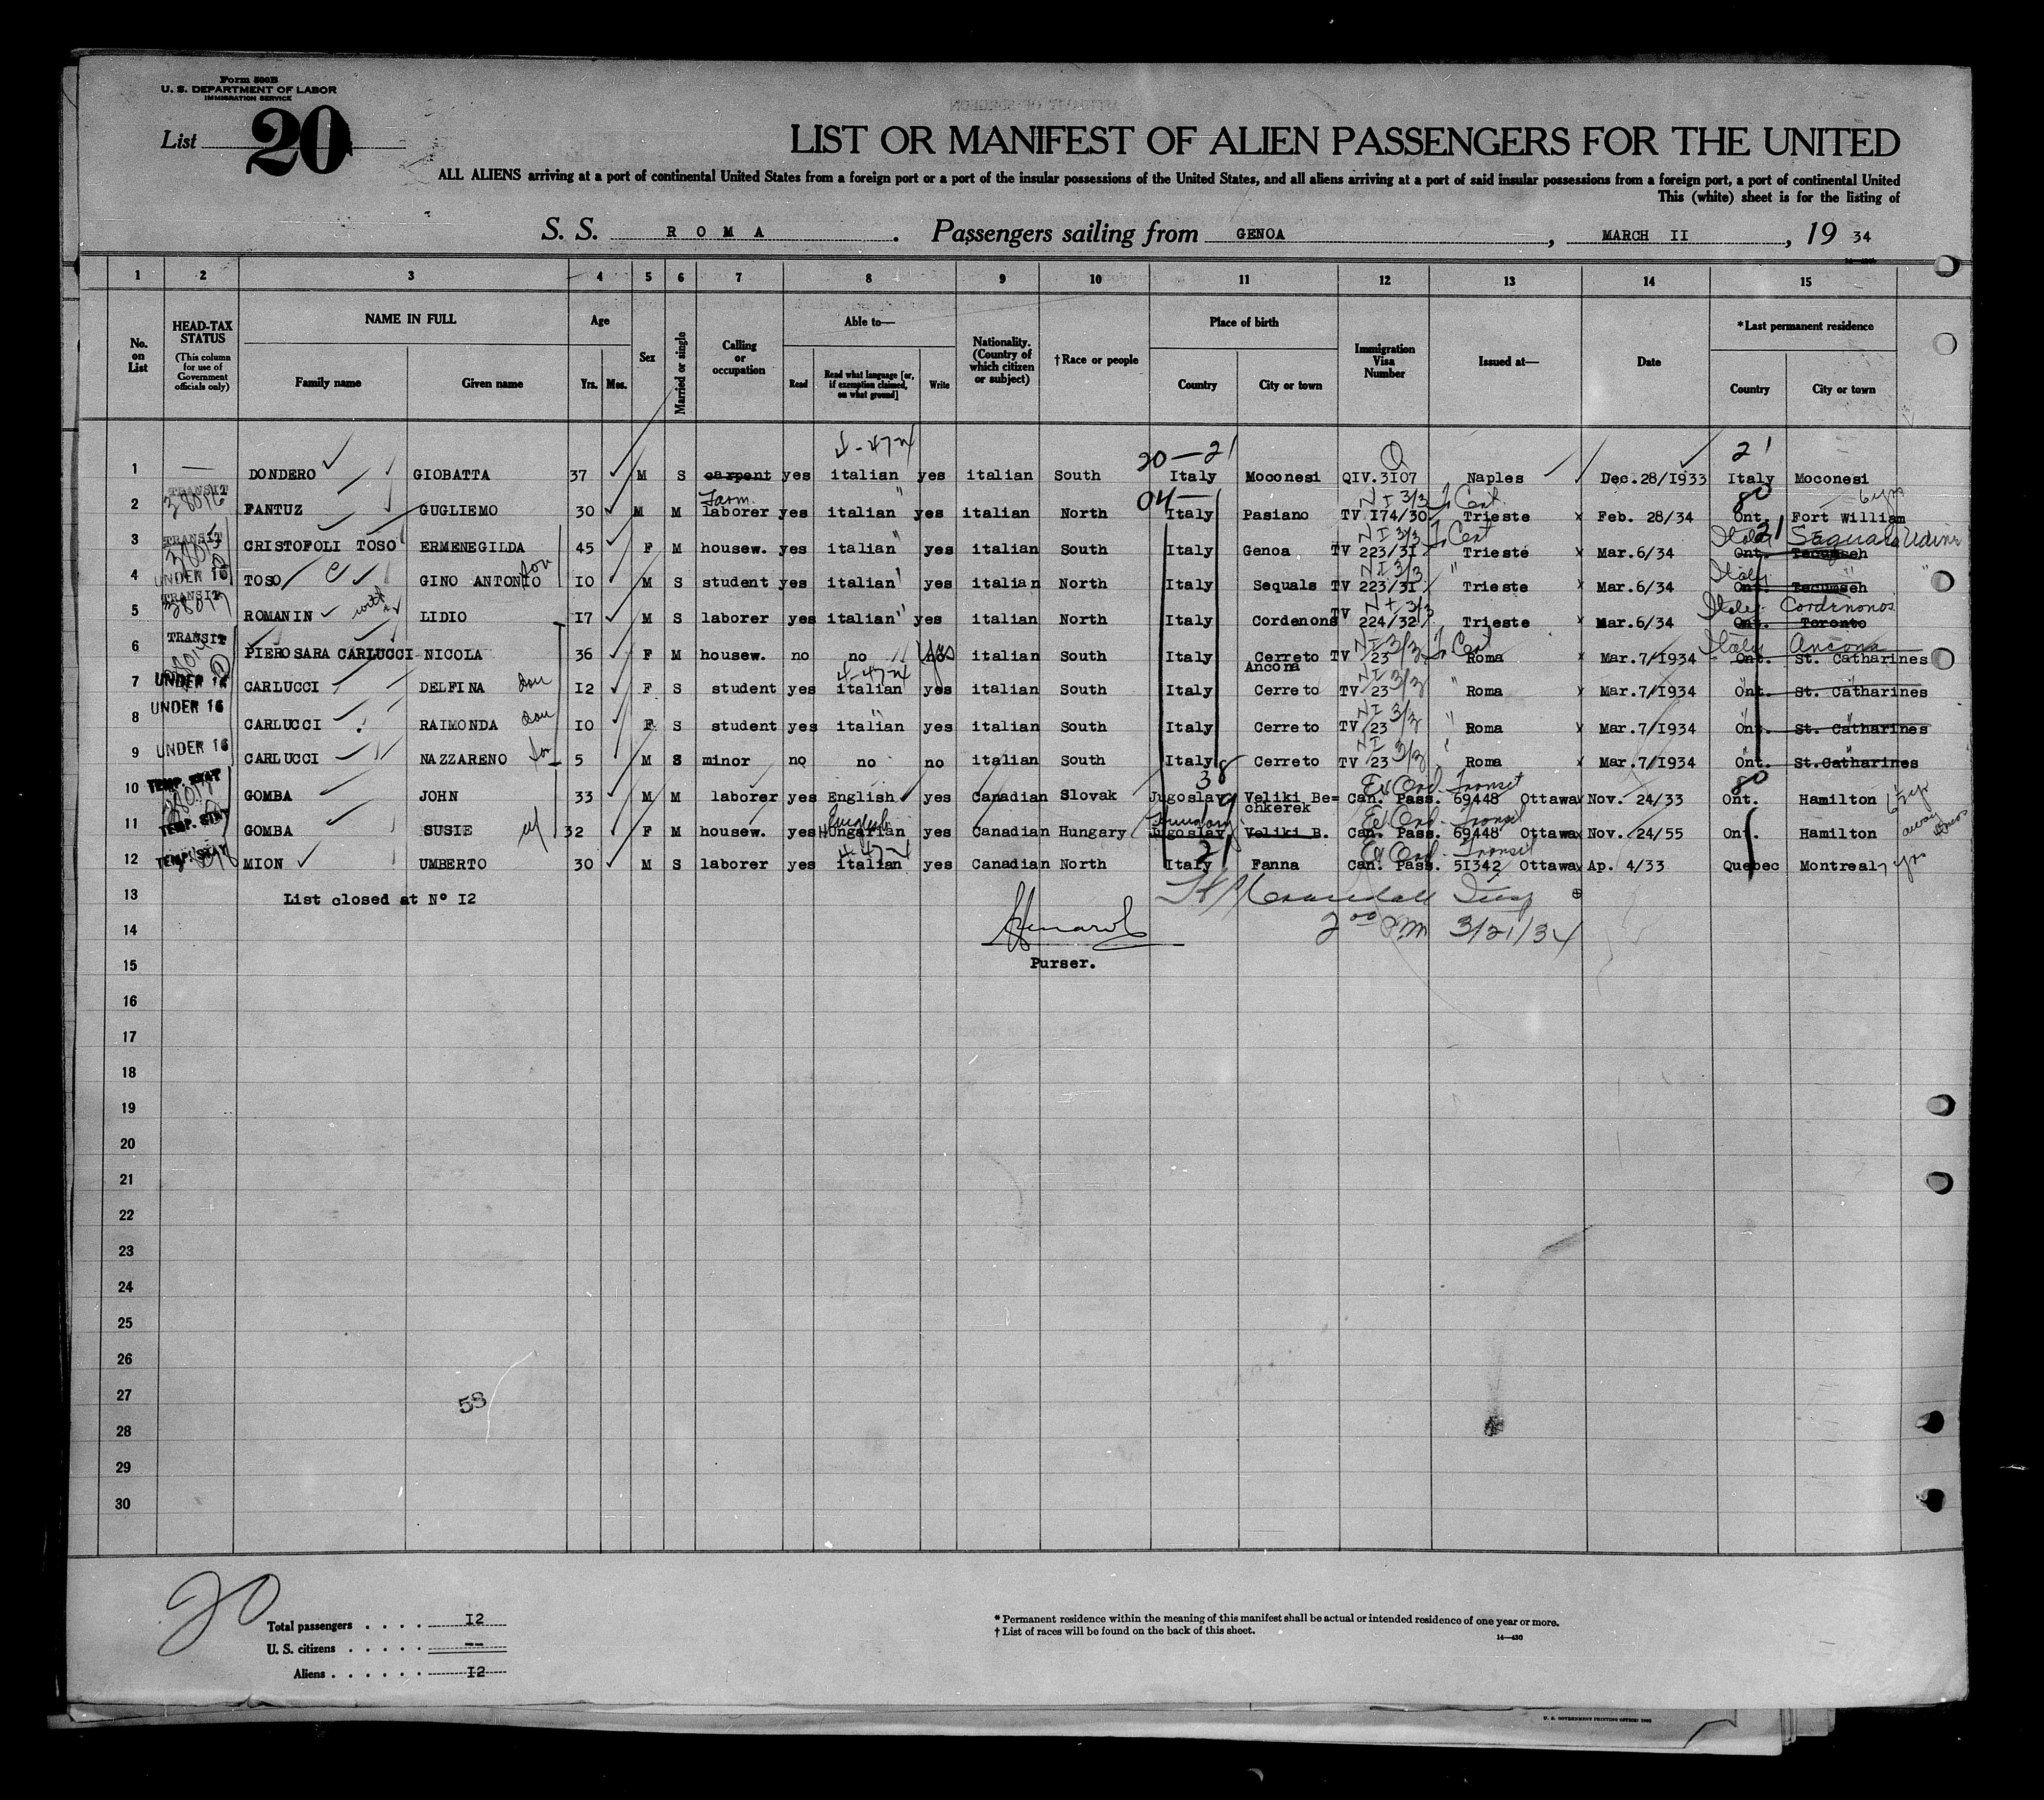 Form 500B
U. S. DEPARTMENT OF LABOR
IMMIGRATION SERVICE
List 20
LIST OR MANIFEST OF ALIEN PASSENGERS FOR THE UNITED
ALL ALIENS arriving at a port of continental United States from a foreign port or a port of the insular possessions of the United States, and all aliens arriving at a port of said insular possessions from a foreign port, a port of continental United
This (white) sheet is for the listing of
S. S. ROMA . Passengers sailing from GENOA , MARCH II , 19 34
1 2 3 4 5 6 7 8 9 10 11 12 13 14 15
No. on List
HEAD-TAX STATUS (This column for use of Government officials only)
NAME IN FULL
Family name Given name
Age
Yrs. Mos.
Sex
Married or single
Calling or occupation
Able to—
Read Read what language [or, if exemption claimed, on what ground] Write
Nationality. (Country of which citizen or subject)
†Race or people
Place of birth
Country City or town
Immigration Visa Number
Issued at—
Date
*Last permanent residence
Country City or town
4-47-4 20-21 Q 21
1 — DONDERO GIOBATTA 37 M S carpent yes italian yes italian South Italy Moconesi QIV.3I07 Naples Dec.28/I933 Italy Moconesi
TRANSIT Farm 04- NI 3/3 80 6 yrs
2 FANTUZ GUGLIEMO 30 M M laborer yes italian " yes italian North Italy Pasiano TV.I74/30 Trieste x Feb. 28/34 Ont. Fort William
TRANSIT NI 3/3 Italy 21 Udine
3 CRISTOFOLI TOSO ERMENEGILDA 45 F M housew. yes italian " yes italian South Italy Genoa TV 223/3I Trieste x Mar.6/34 Ont. Tecumseh
UNDER 16 son NI 3/3 " Italy "
4 TOSO GINO ANTONIO I0 M S student yes italian yes italian North Italy Sequals TV 223/3I Trieste x Mar.6/34 Ont. Tecumseh
TRANSIT 38017 with 3/3 Italy
5 ROMANIN LIDIO I7 M S laborer yes italian " yes italian North Italy Cordenons TV 224/32 Trieste x Mar.6/34 Ont. Toronto
TRANSIT yes NI 3/3 Italy Ancona
6 PIEROSARA CARLUCCI NICOLA 36 F M housew. no no no italian South Italy Cerreto Ancona TV 23 Roma x Mar.7/I934 Ont. St. Catharines
UNDER 16 4-47-4 NI 3/3 "
7 CARLUCCI DELFINA dau I2 F S student yes italian yes italian South Italy Cerreto TV 23 Roma x Mar.7/I934 Ont. St. Catharines
UNDER 16 " NI 3/3 "
8 CARLUCCI RAIMONDA dau I0 F S student yes italian yes italian South Italy Cerreto TV 23 Roma x Mar.7/I934 Ont. St. Catharines
UNDER 16 NI 3/3
9 CARLUCCI NAZZARENO 5 M S minor no no no italian South Italy Cerreto TV 23 Roma x Mar.7/I934 Ont. St.Catharines
TEMP. STAY 38 Transit 80
10 GOMBA JOHN 33 M M laborer yes English yes Canadian Slovak Jugoslav Veliki Be=chkerek Can. Pass. 69448 Ottawa Nov. 24/33 Ont. Hamilton
TEMP. STAY English Hungary Transit
11 GOMBA SUSIE 32 F M housew. yes Hungarian yes Canadian Hungary Jugoslav Veliki B. Can. Pass. 69448 Ottawa Nov. 24/55 Ont. Hamilton
TEMP. STAY 4-47-4 21 Transit
12 MION UMBERTO 30 M S laborer yes italian yes Canadian North Italy Fanna Can. Pass. 5I342 Ottawa Ap. 4/33 Quebec Montreal 7 yrs
13 List closed at N° I2
14 2 00 PM 3/21/34
15 Purser.
16
17
18
19
20
21
22
23
24
25
26
27 58
28
29
30
20
Total passengers . . . . I2
U. S. citizens . . . . . --
Aliens . . . . . . I2
* Permanent residence within the meaning of this manifest shall be actual or intended residence of one year or more.
† List of races will be found on the back of this sheet.
14—430
U. S. GOVERNMENT PRINTING OFFICE